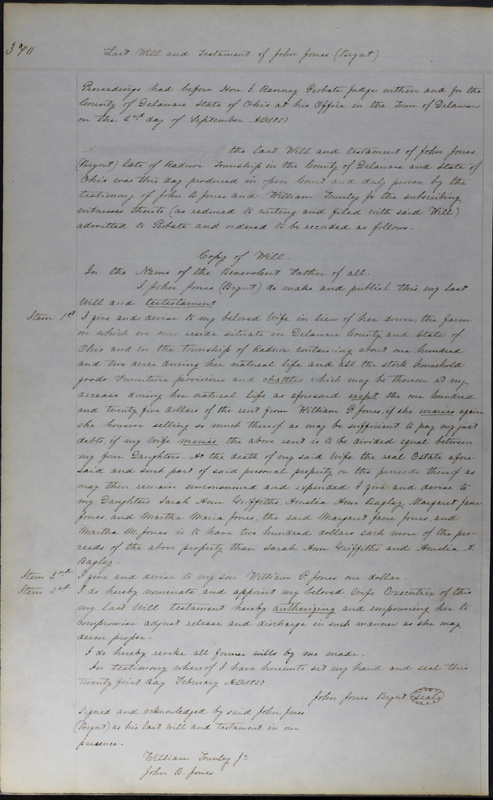 370
Last Will and Testament of John Jones (Brynt)
Proceedings had before Hon. T. Ranney Probate Judge within and for the
County of Delaware State of Ohio at his Office in the Town of Delaware
on the 2nd day of September AD
the last Will and testament of John Jones
(Brynt) late of Radnor Township in the County of Delaware and State of
Ohio was this day produced in open Court and duly proven by the
testimony of John B. Jones and William Jr the subscribing
witnesses thereto (as reduced to writing and filed with said Will)
admitted to Probate and ordered to be recorded as follows.
Copy of Will.
In the Name of the Benevolent Father of all.
I, John Jones (Brynt) do make and publish this my last
Will and testament
Item 1st I give and devise to my beloved Wife in lieu of her dower, the farm
on which we now reside situate in Delaware County and State of
Ohio and in the township of Radnor containing about one hundred
and two acres during her natural life and all the stock household
goods Furniture provisions and chattles which may be thereon at my
decease during her natural life as aforesaid exept the one hundred
and twenty five dollars of the rent from William P. Jones, if she maries again
she however selling so much thereof as may be sufficient to pay my just
debts, if my Wife maries the above rent is to be divided equal between
my four Daughters. At the death of my said Wife the real Estate afore-
said and such part of said personal property or the proceeds thereof as
may then remain unconsumed and expended I give and devise to
my Daughters Sarah Ann Griffiths, Amelia Ann Bagley, Margaret Jane
Jones, and Martha Maria Jones, the said Margaret Jane Jones, and
Martha M. Jones is to have two hundred dollars each more of the pro-
ceeds of the above property than Sarah Ann Griffiths and Amelia A.
Bagley.
Item 2nd I give and devise to my son William P. Jones one dollar.
Item 3rd I do hereby nominate and appoint my beloved Wife Executrix of this
my Last Will testament hereby authorizing and empowering her to
compromise adjust release and discharge in such manner as she may
deem proper.
I do hereby revoke all former wills by me made.
In testimony whereof I have hereunto set my hand and seal this
twenty first day February AD
John Jones Brynt (seal)
Signed and acknowledged by said John Jones
(Brynt) as his last will and testament in our
presence.
William Jr
John B. Jones